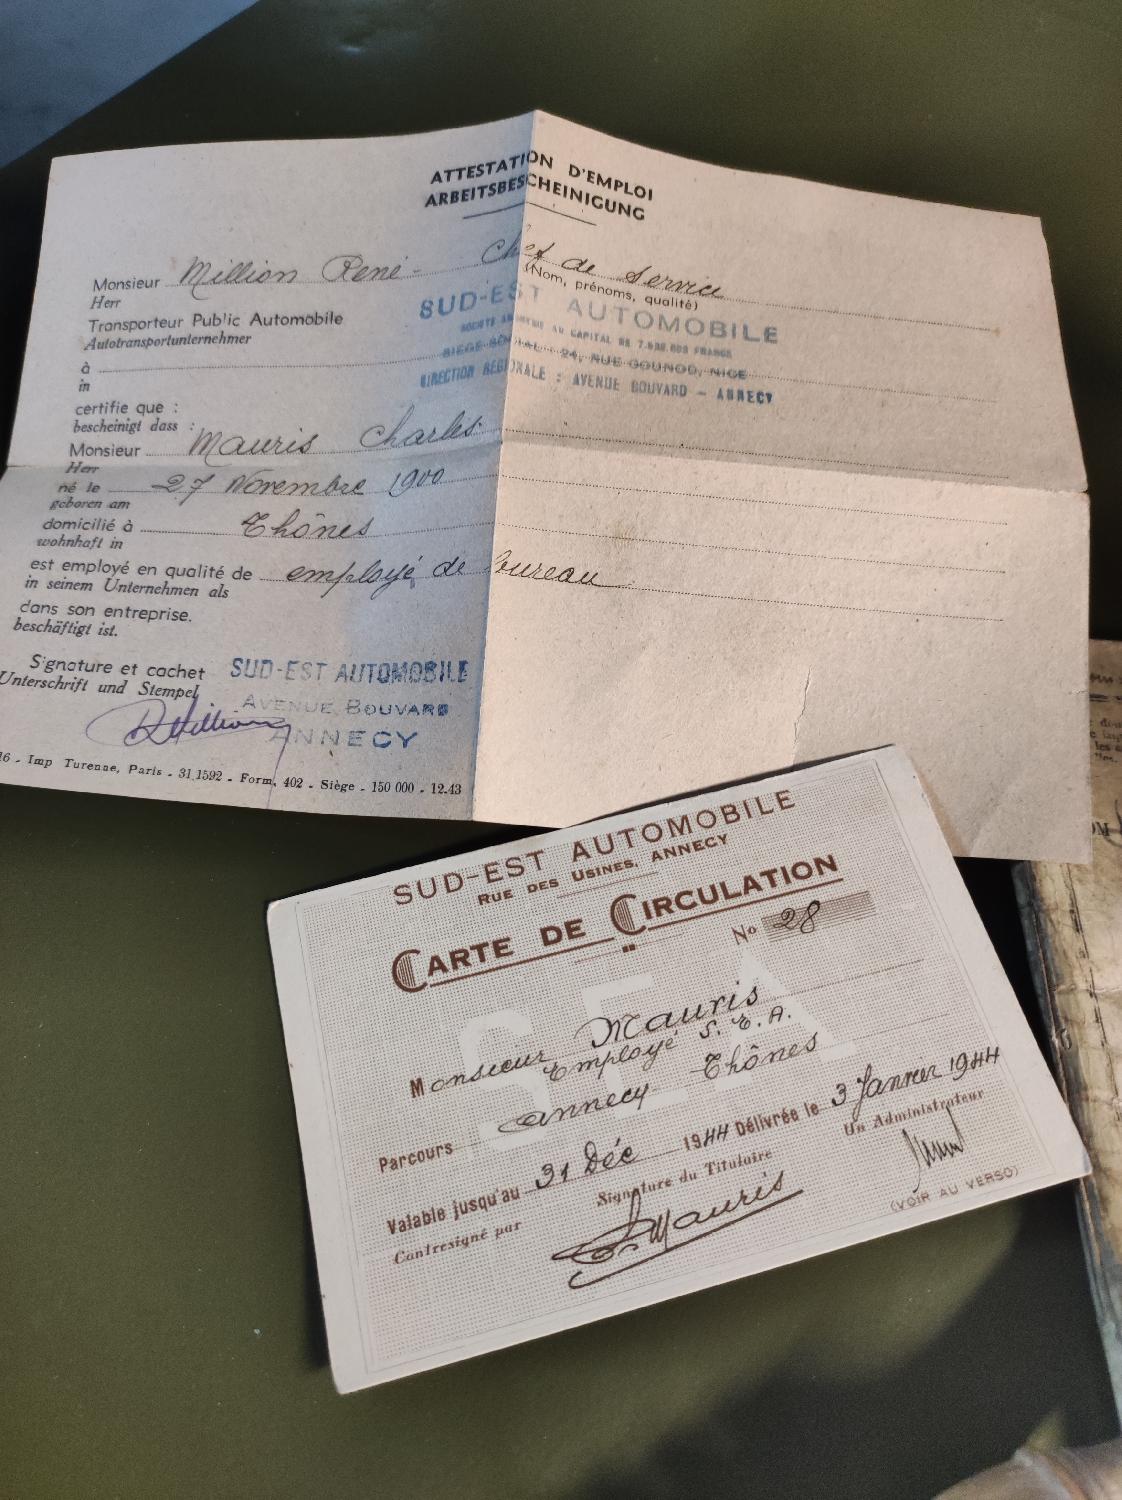 ATTESTATION D'EMPLOI
ARBEITSBESCHEINIGUNG
Monsieur Million René - Chef de Service
Herr
(Nom, prénoms, qualité)
Transporteur Public Automobile
Autotransportunternehmer
SUD-EST AUTOMOBILE
SOCIÉTÉ ANONYME AU CAPITAL DE FRANCS
à
in
SIÈGE SOCIAL : 24, RUE GOUNOD, NICE
DIRECTION RÉGIONALE : AVENUE BOUVARD - ANNECY
certifie que :
bescheinigt dass :
Monsieur Mauris Charles
Herr
né le 27 Novembre 1900
geboren am
domicilié à Thônes
wohnhaft in
est employé en qualité de employé de bureau
in seinem Unternehmen als
dans son entreprise.
beschäftigt ist.
Signature et cachet
Unterschrift und Stempel
SUD-EST AUTOMOBILE
AVENUE BOUVARD
ANNECY
RMillion
16 - Imp Turenne, Paris - 31.1592 - Form. 402 - Siège - 150 000 - 12.43
SUD-EST AUTOMOBILE
RUE DES USINES, ANNECY
CARTE DE CIRCULATION
No 28
SEA
Monsieur Mauris
Employé S.E.A.
Parcours Annecy - Thônes
Valable jusqu'au 31 Déc 1944 Délivrée le 3 Janvier 1944
Contresigné par
Signature du Titulaire
Un Administrateur
Mauris
(VOIR AU VERSO)